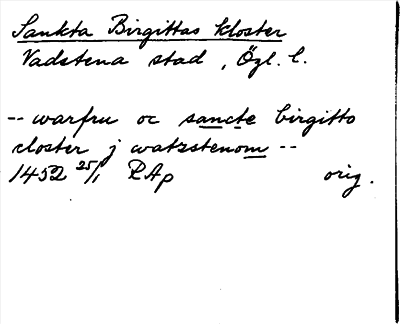 Sankta Birgittas kloster
Vadstena stad, Ögl. l.
-- warfru oc sancte birgitto
closter j watzstenom --
1452 25/1 RAp orig.